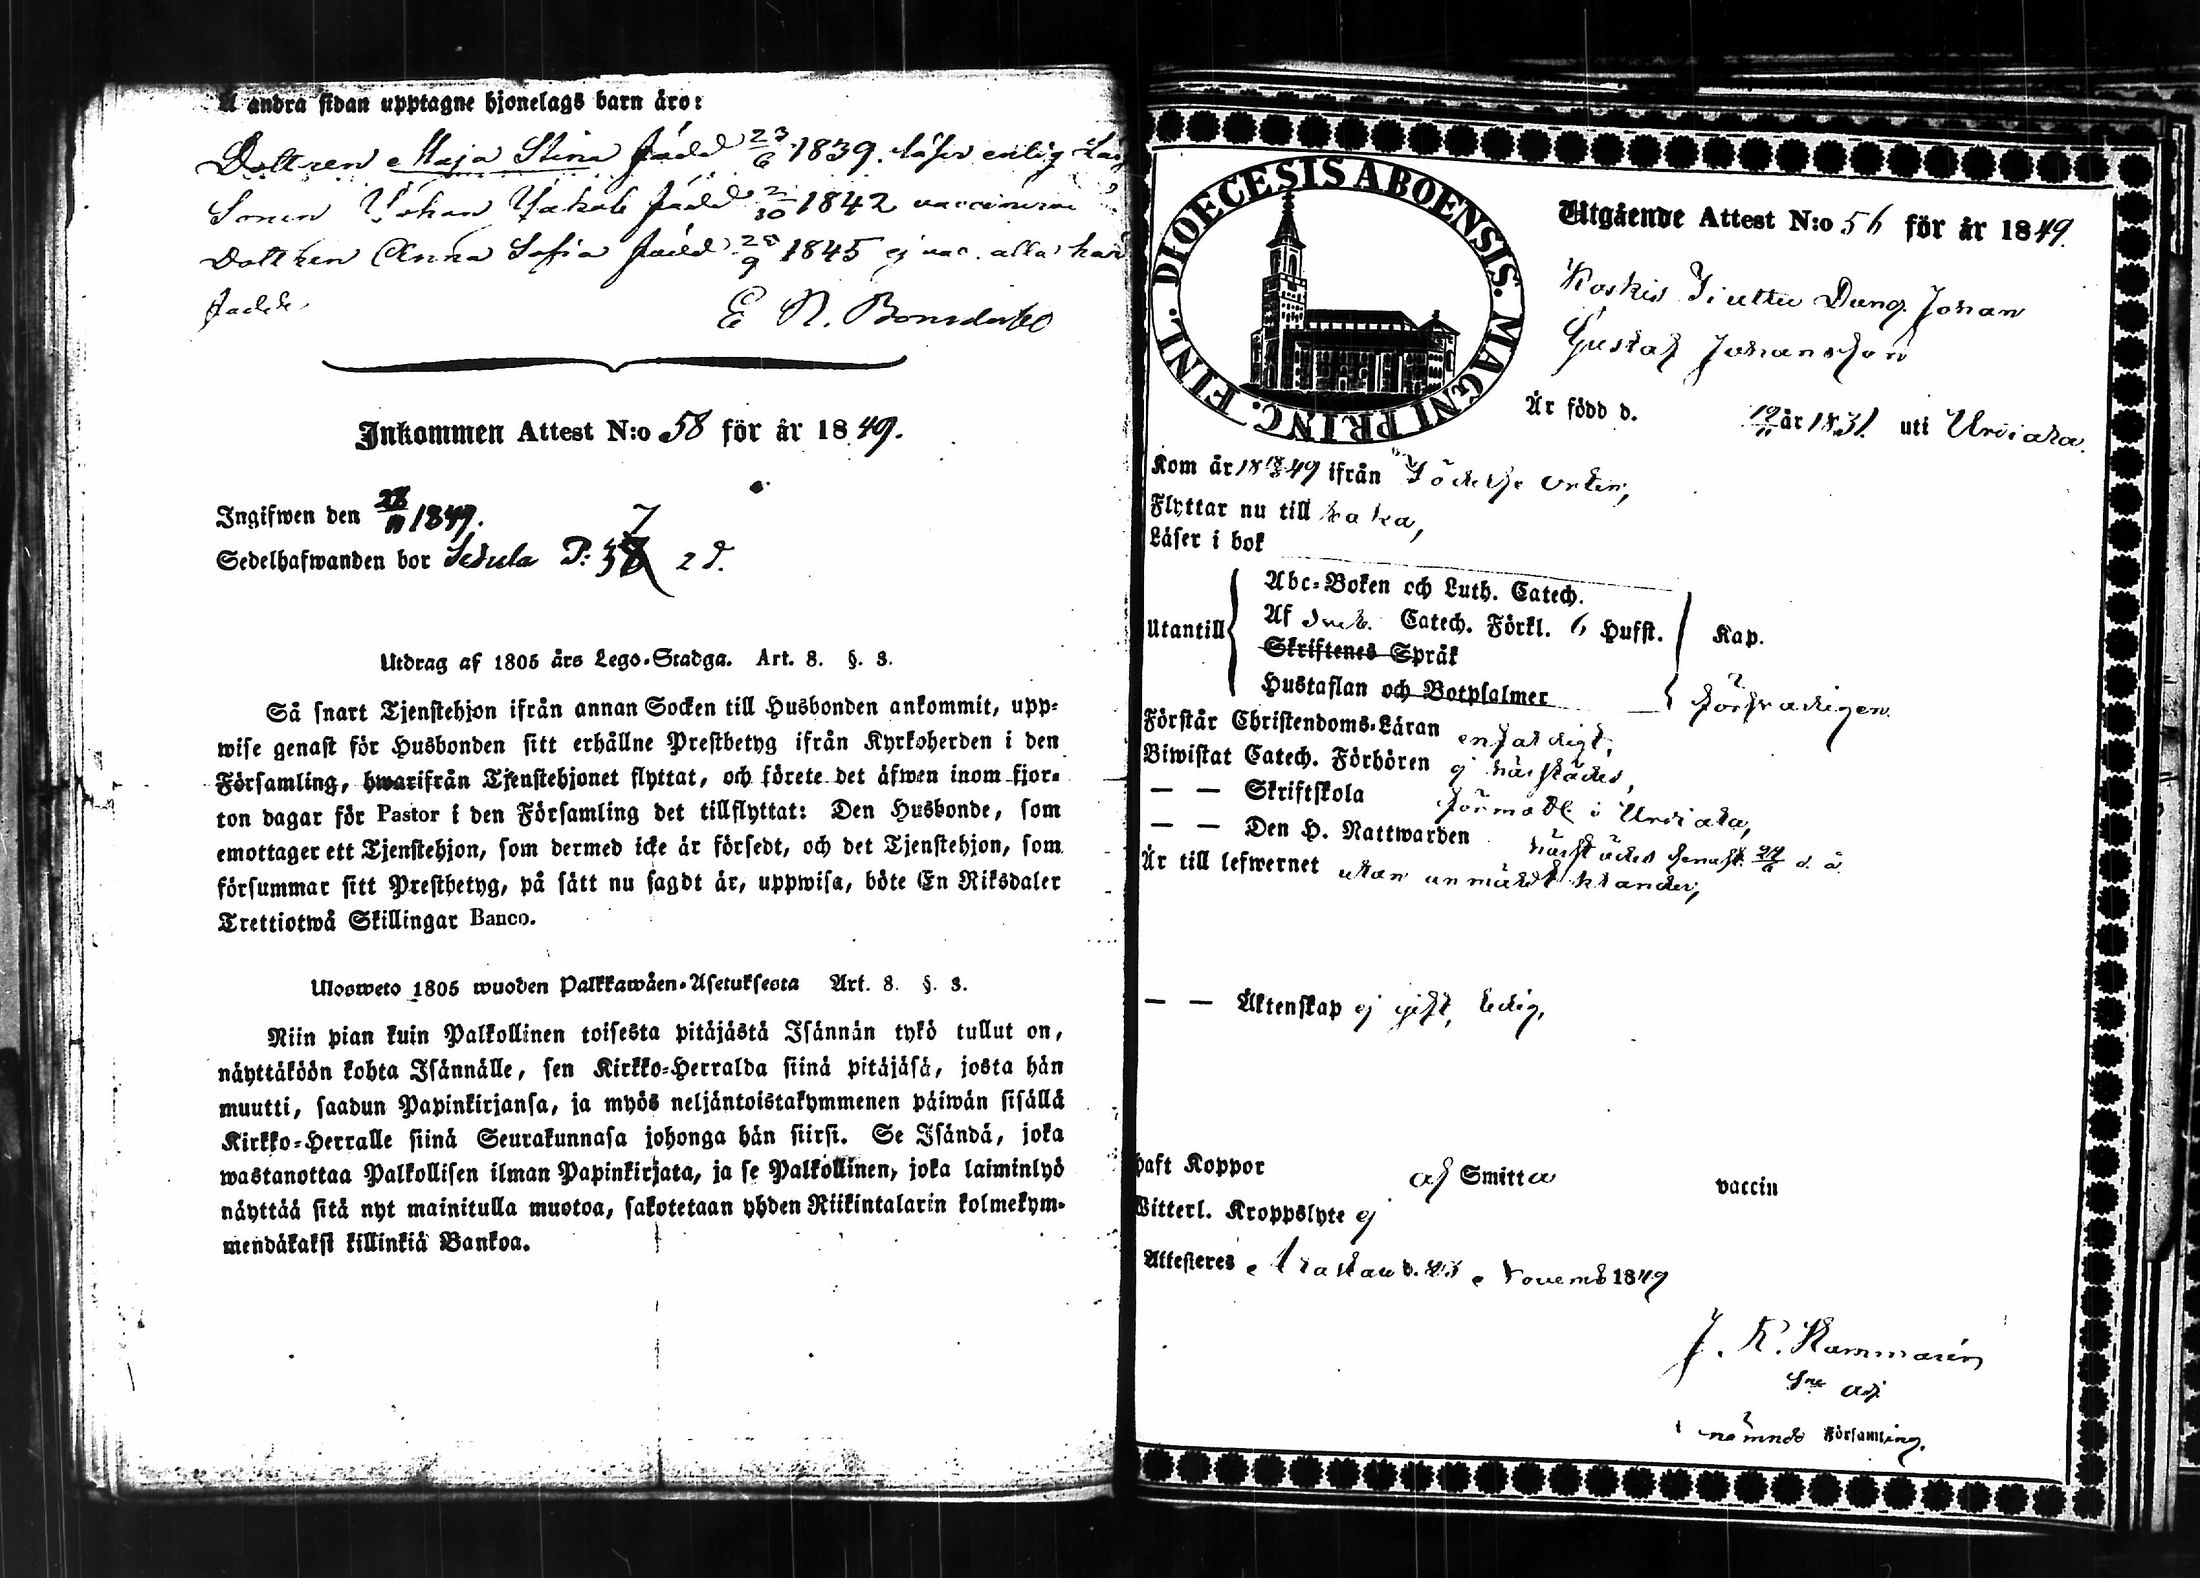 å andra sidan upptagne hjonelags barn äro:
Dottren Maja Stina född 23/6 1839. läser enlig
Sonen Johan Jakob född 2/10 1842 vaccinerad
Dottren Anna Sofia född 1845 ej vac. alla här
födde
E N. Bonsdorff
Inkommen Attest N:o 58 för år 1849.
Ingifwen den 28/11 1849.
Sedelhafwanden bor P: 2 d.
Utdrag af 1805 års Lego-Stadga. Art. 8. §. 3.
Så snart Tjenstehjon ifrån annan Socken till Husbonden ankommit, upp-
wise genast för Husbonden sitt erhållne Prestbetyg ifrån Kyrkoherden i den
Församling, hwarifrån Tjenstehjonet flyttat, och förete det äfwen inom fjor-
ton dagar för Pastor i den Församling det tillflyttat: Den Husbonde, som
emottager ett Tjenstehjon, som dermed icke är försedt, och det Tjenstehjon, som
försummar sitt Prestbetyg, på sätt nu sagdt är, uppwisa, böte En Riksdaler
Trettiotwå Skillingar Banco.
Ulosweto 1805 wuoden Palkkawäen-Asetuksesta Art. 8. §. 3.
Niin pian kuin Palkollinen toisesta pitäjästä Isännän tykö tullut on,
näyttäköön kohta Isännälle, sen Kirkko-Herralda siinä pitäjäsä, josta hän
muutti, saadun Papinkirjansa, ja myös neljäntoistakymmenen päiwän sisällä
Kirkko-Herralle siinä Seurakunnasa johonga hän siirsi. Se Isändä, joka
wastanottaa Palkollisen ilman Papinkirjata, ja se Palkollinen, joka laiminlyö
näyttää sitä nyt mainitulla muotoa, sakotetaan yhden Riikintalarin kolmekym-
mendäkaksi killinkiä Bankoa.
DIOECESIS ABOENSIS. MAGNI PRINC. FINL.
Utgående Attest N:o 56 för år 1849.
Koskis Dreng Johan
Gustaf Johansson
Är född d. år 1831. uti Urdiala.
Kom år 1849 ifrån Födelse orten,
Flyttar nu till
Läser i bok
Utantill
Abc-Boken och Luth. Catech.
Af Catech. Förkl. 6 Hufst.
Skriftenes Språk
Hustaflan och Botpsalmer
Kap.
försvarligen
Förstår Christendoms-Läran enfaldigt,
Biwistat Catech. Förhören ej härstädes,
— — Skriftskola förmodl. i Urdiala,
— — Den H. Nattwarden härstädes senast d. å.
Är till lefwernet utan anmäldt klander,
— — Äktenskap ej gift, ledig,
haft Koppor af Smitta vaccin
Witterl. Kroppslyte ej
Attesteres d. Novemb 1849
i nämnde Församling.